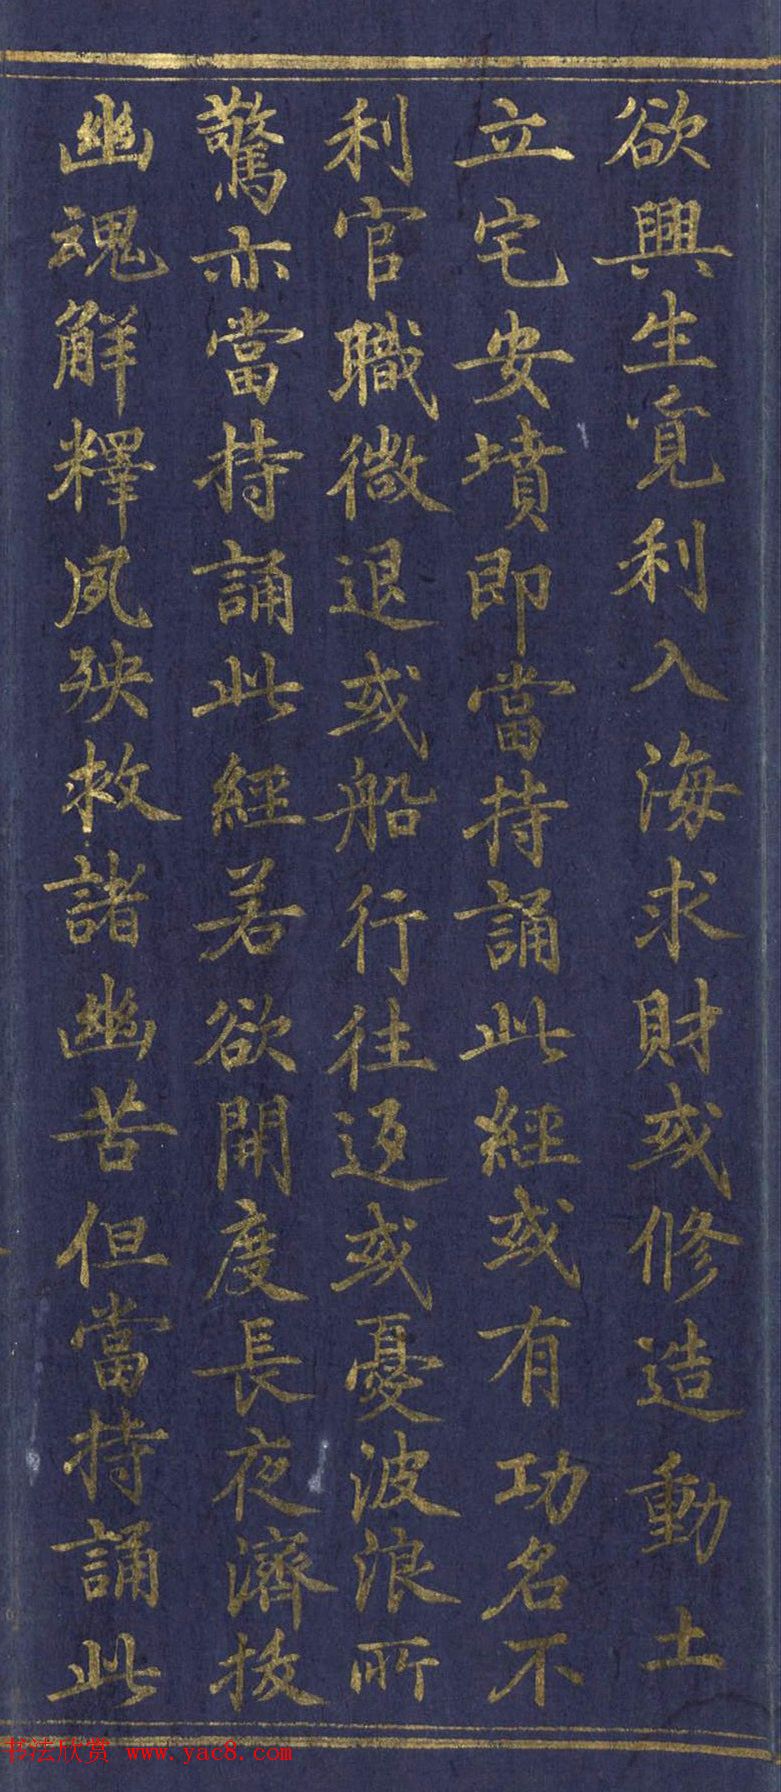 欲興生覓利入海求財或修造動土
立宅安墳即當持誦此經或有功名不
利官職微退或船行往返或憂波浪所
驚亦當持誦此經若欲開度長夜濟拔
幽魂解釋夙殃救諸幽苦但當持誦此
书法欣赏 www.yac8.com